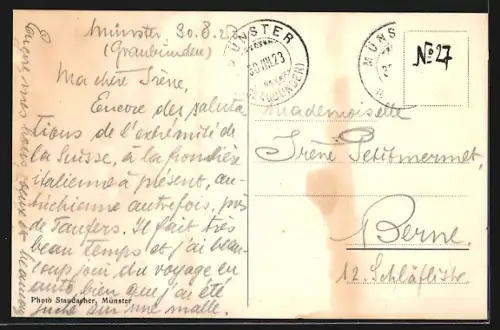 Münster, 30.8.23
(Graubünden)
Ma chère Irène,
Encore des saluta-
tions de l'extrémité de
la Suisse, à la frontière
italienne à présent, au-
trichienne autrefois, près
de Taufers. Il fait très
beau temps et j'ai beau-
coup joui du voyage en
auto bien que j'ai été
juché sur une malle.
Photo Staudacher, Münster
MÜNSTER
30.VIII.23
(GRAUBÜNDEN)
MÜNS
No 27
Mademoiselle
Irène Petitmermet,
Berne
12. Schläflistr.